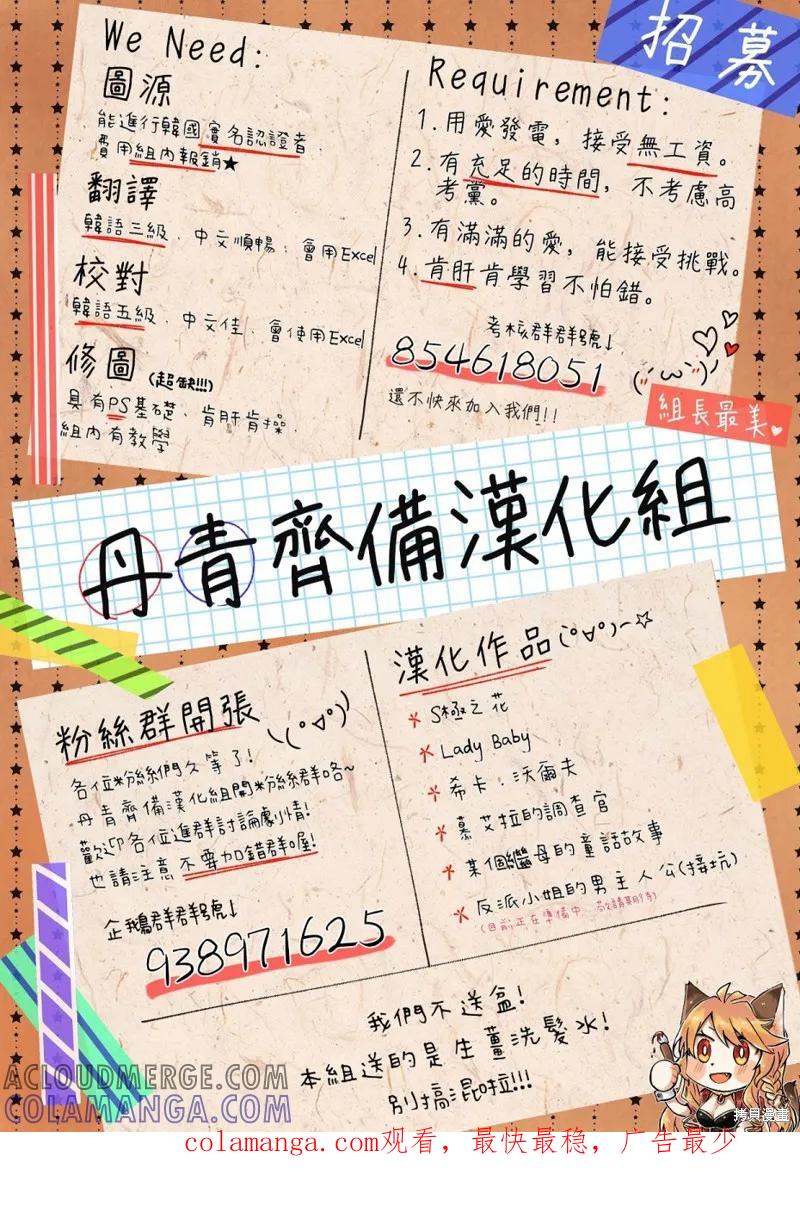 招募
We Need:
圖源
能進行韓國實名認證者
費用組內報銷★
翻譯
韓語三級、中文順暢、會用Excel
校對
韓語五級、中文佳、會使用Excel
修圖(超缺!!!)
具有PS基礎、肯肝肯操、
組內有教學
Requirement:
1.用愛發電，接受無工資。
2.有充足的時間，不考慮高
考黨。
3.有滿滿的愛，能接受挑戰。
4.肯肝肯學習不怕錯。
考核群群號↓
854618051
還不快來加入我們!!
組長最美♥
丹青齊備漢化組
粉絲群開張
各位粉絲們久等了!
丹青齊備漢化組開粉絲群咯~
歡迎各位進群討論劇情!
也請注意不要加錯群喔!
企鵝群群號↓
938971625
漢化作品(°∀°)~☆
S極之花
Lady Baby
希卡·沃爾夫
慕艾拉的調查官
某個繼母的童話故事
反派小姐的男主人公(接坑)
(目前正在準備中，敬請期待)
我們不送盒!
本組送的是生薑洗髮水!
別搞混啦!!!
ACLOUDMERGE.COM
COLAMANGA.COM
拷貝漫畫
colamanga.com观看，最快最稳，广告最少